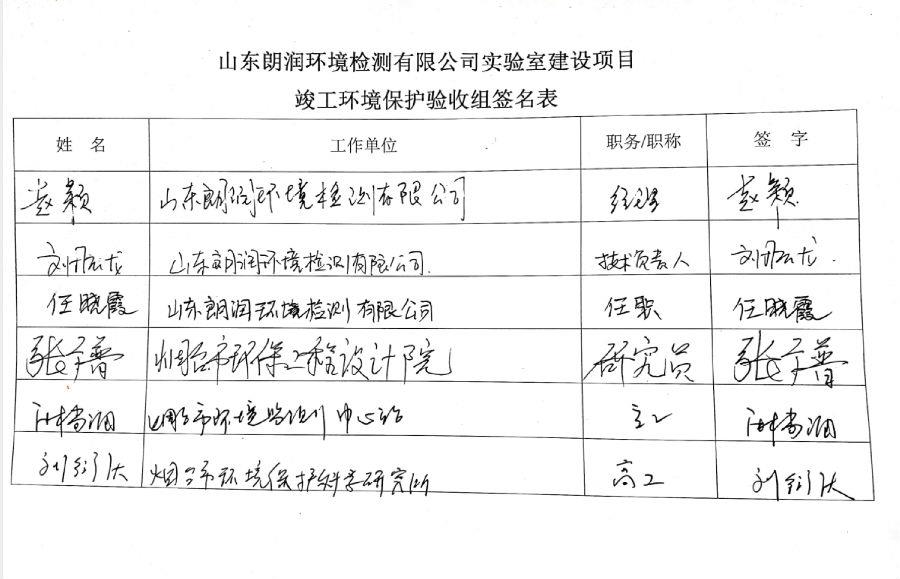 山东朗润环境检测有限公司实验室建设项目
竣工环境保护验收组签名表
姓 名 工作单位 职务/职称 签 字
赵颖 山东朗润环境检测有限公司 经理 赵颖
山东朗润环境检测有限公司. 技术负责人
任晓霞 山东朗润环境检测有限公司 任职 任晓霞
烟台市环保工程设计院 研究员
烟台市环境监测中心站
烟台市环境保护科学研究所 高工